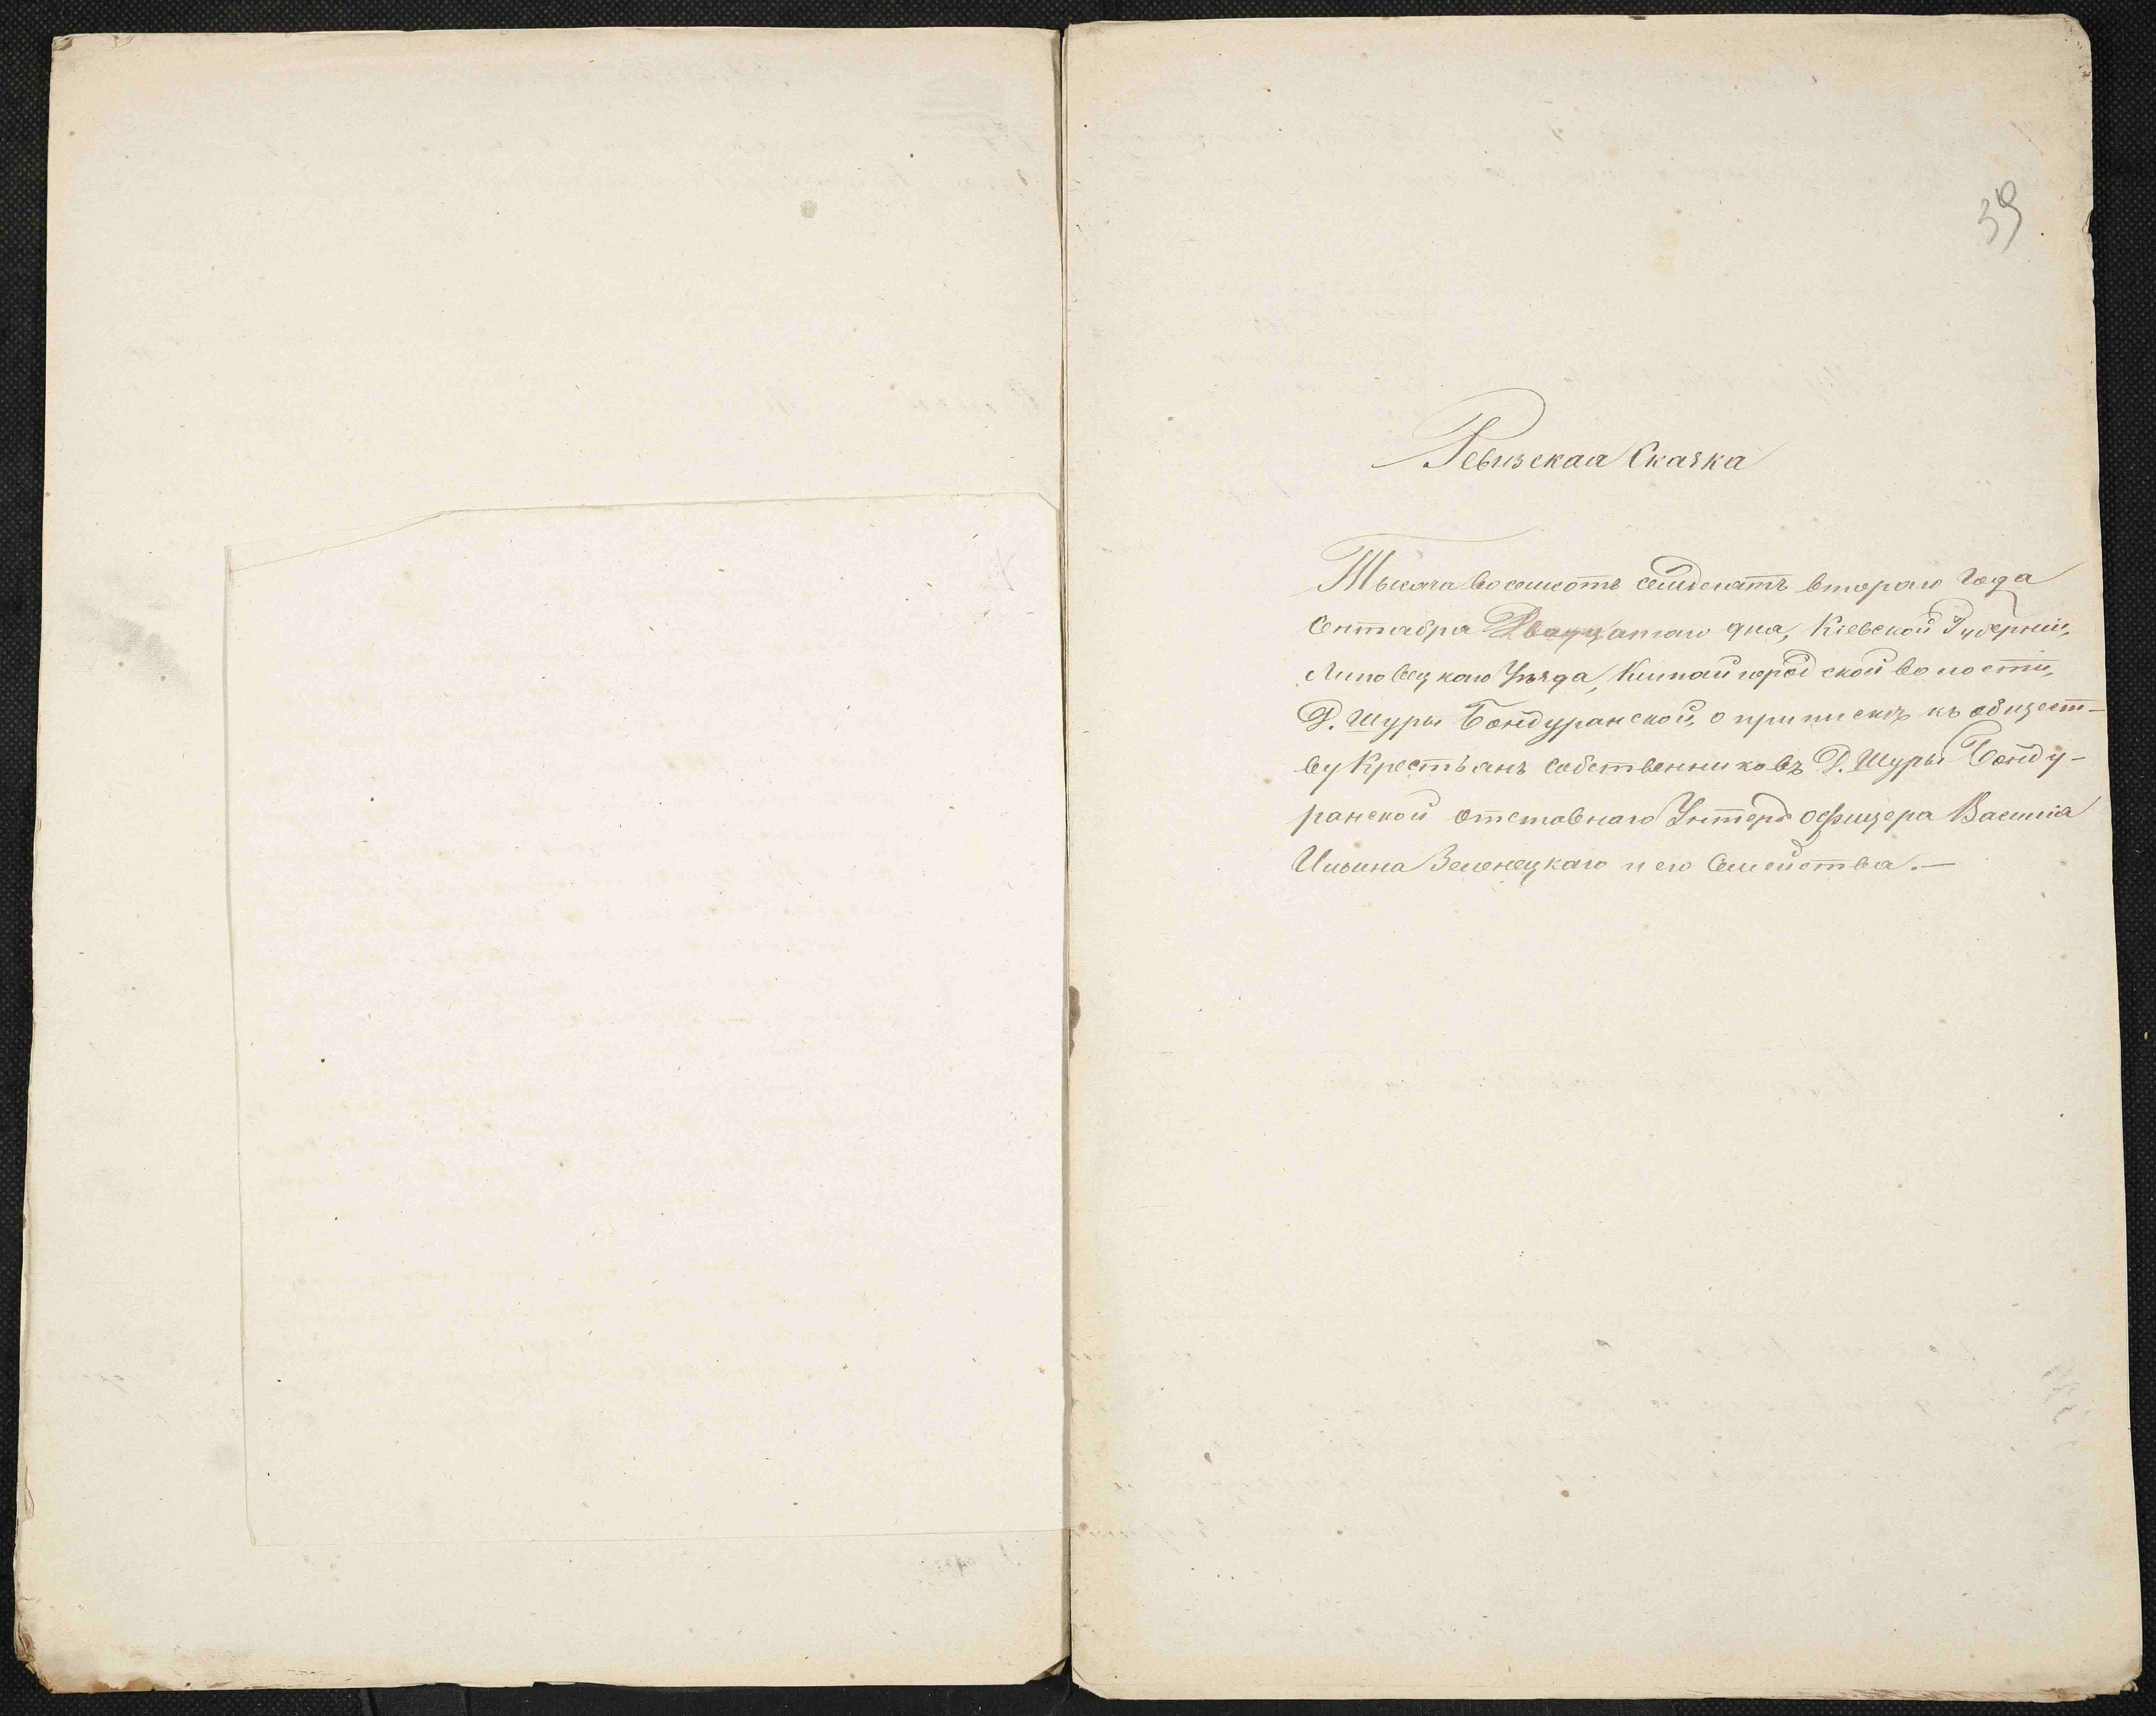 39
Ревизская Сказка
Тысяча восемсотъ семдесятъ втораго года
Сентября Двадцатаго дня, Кіевской Губерніи,
Липовецкаго Уѣзда, Китайгородской волости,
Д. Шуры Бондуранской, о припискѣ къ общест-
ву Крестьянъ собственниковъ Д. Шуры Бонду-
ранской отставнаго Унтеръ офицера Василія
Ильина Зеленецкаго и его Семейства.—